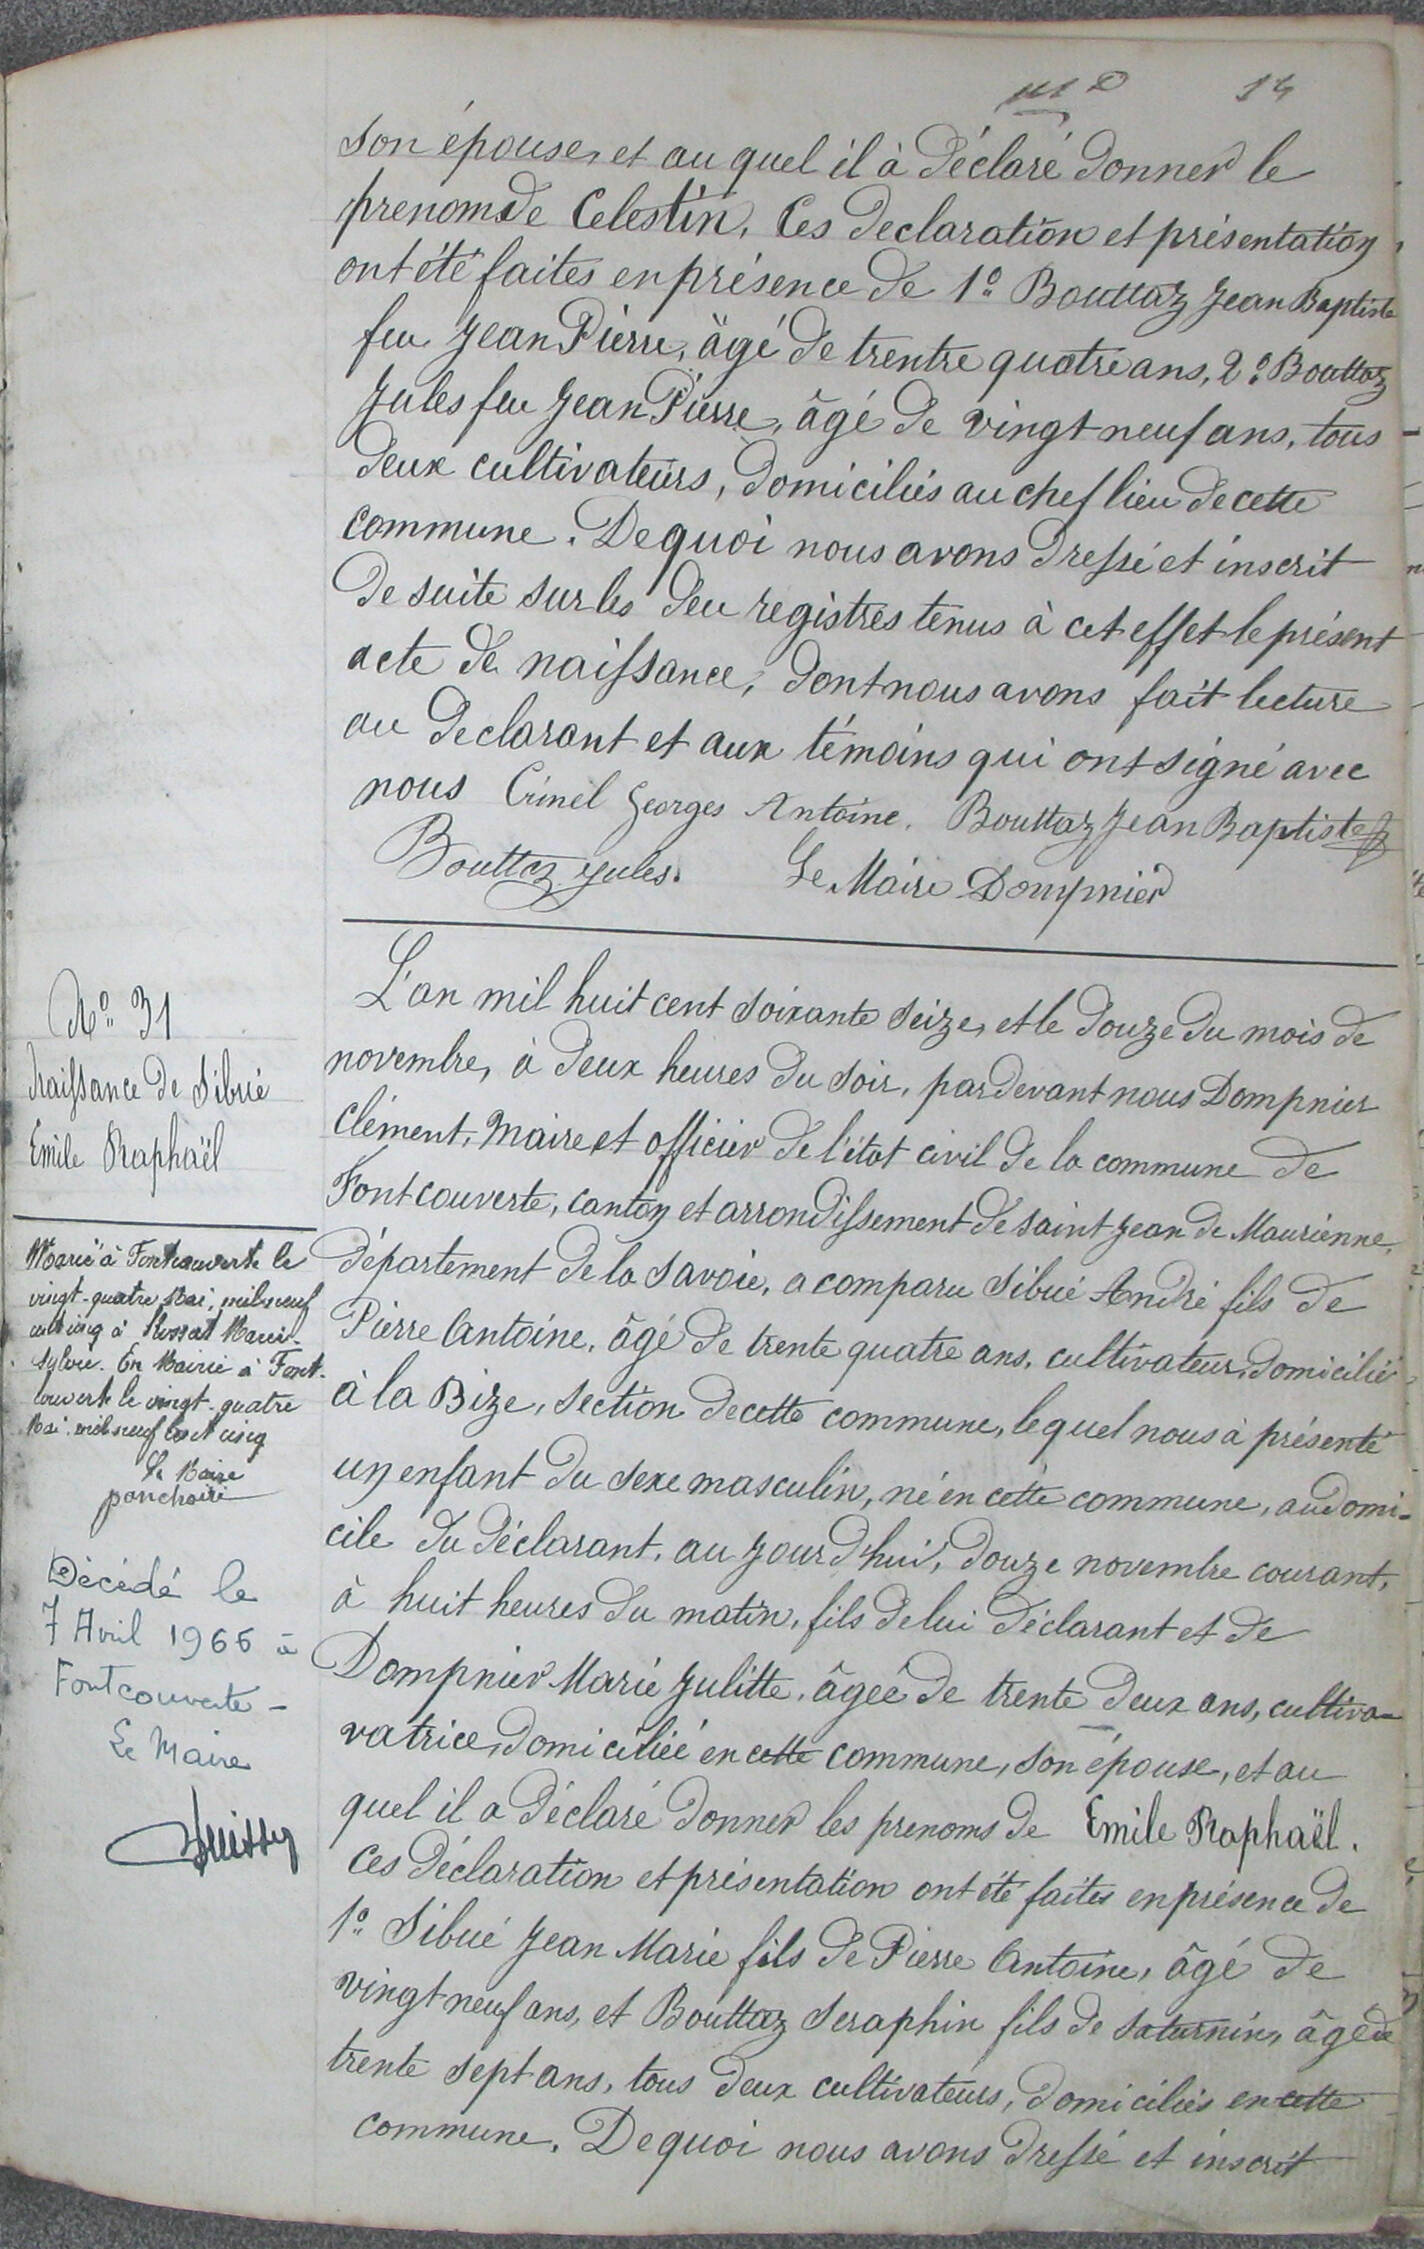 14
son épouse, et au quel il à déclaré donner le
prenom de Celestin, Ces declaration et présentation
ont été faites en présence de 1º Bouttaz Jean Baptiste
feu Jean Pierre, âgé de trentre quatre ans, 2º Bouttaz
Jules feu Jean Pierre, âgé de vingt neuf ans, tous
deux cultivateurs, domiciliés au chef lieu de cette
commune. De quoi nous avons dressé et inscrit
de suite sur les deu registres tenus à cet effet le présent
acte de naissance, dont nous avons fait lecture
au declarant et aux témoins qui ont signé avec
nous Crinel Georges Antoine. Bouttaz Jean Baptiste
Bouttaz Jules. Le Maire Dompnier
Nº 31
Naissance de Sibué
Emile Raphaël
Marié à Fontcouverte le
vingt-quatre Mai, mil neuf
cent cinq à Rossat Marie-
Sylvie. En Mairie à Font-
couverte le vingt-quatre
Mai mil neuf cent cinq
Le Maire
Décédé le
7 Avril 1966 à
Fontcouverte -
Le Maire
L'an mil huit cent soixante seize, et le douze du mois de
novembre, à deux heures du soir, pardevant nous Dompnier
Clément, Maire et officier de l'état civil de la commune de
Fontcouverte, canton et arrondissement de saint Jean de Maurienne,
département de la Savoie, a comparu Sibué André fils de
Pierre Antoine, âgé de trente quatre ans, cultivateur, domicilié
à la Bize, section de cette commune, lequel nous à présenté
un enfant du sexe masculin, né en cette commune, au domi-
cile du déclarant, au jour d'hui, douze novembre courant,
à huit heures du matin, fils de lui déclarant et de
Dompnier Marie Julitte, âgée de trente deux ans, cultiva-
vatrice, domiciliée en cette commune, son épouse, et au
quel il a déclaré donner les prenoms de Emile Raphaël.
Ces déclaration et présentation ont été faites en présence de
1º Sibué Jean Marie fils de Pierre Antoine, âgé de
vingt neuf ans, et Bouttaz Seraphin fils de Saturnin, âgé de
trente sept ans, tous deux cultivateurs, domiciliés en cette
commune. De quoi nous avons dressé et inscrit